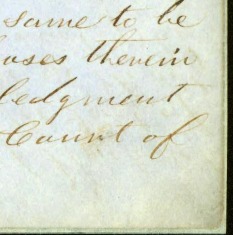 same to be
oses therein
ledgment
Count of